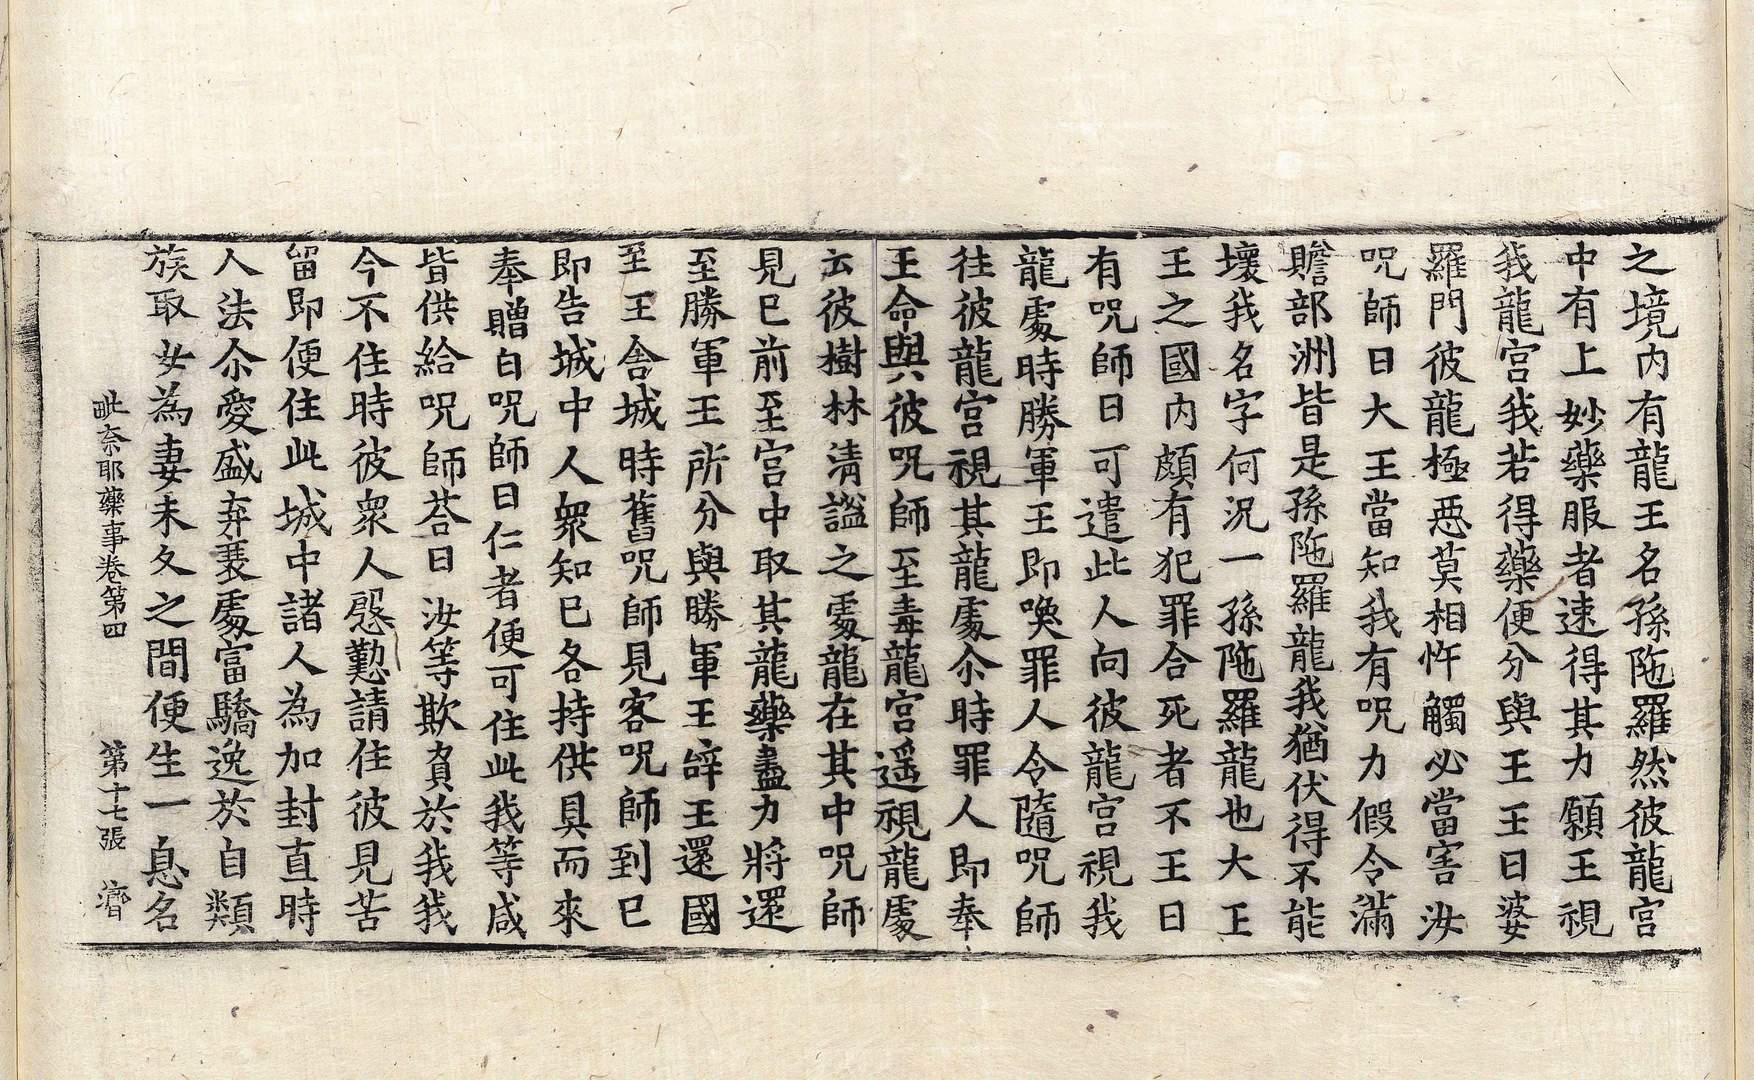 之境內有龍王名孫陁羅然彼龍宮
中有上妙藥服者速得其力願王視
我龍宮我若得藥便分與王王曰婆
羅門彼龍極惡莫相忤觸必當害汝
呪師曰大王當知我有呪力假令滿
贍部洲皆是孫陁羅龍我猶伏得不能
壞我名字何況一孫陁羅龍也大王
王之國內頗有犯罪合死者不王曰
有呪師曰可遣此人向彼龍宮視我
龍處時勝軍王即喚罪人令隨呪師
往彼龍宮視其龍處尒時罪人即奉
王命與彼呪師至毒龍宮遥視龍處
云彼樹林清謐之處龍在其中呪師
見已前至宮中取其龍藥盡力將還
至勝軍王所分與勝軍王辝王還國
至王舍城時舊呪師見客呪師到已
即告城中人眾知已各持供具而來
奉贈白呪師曰仁者便可住此我等咸
皆供給呪師荅曰汝等欺負於我我
今不住時彼眾人慇懃請住彼見苦
留即便住此城中諸人為加封直時
人法尒愛盛弃衰處富驕逸於自類
族取女為妻未久之間便生一息名
毗奈耶藥事卷第四 第十七張 濟